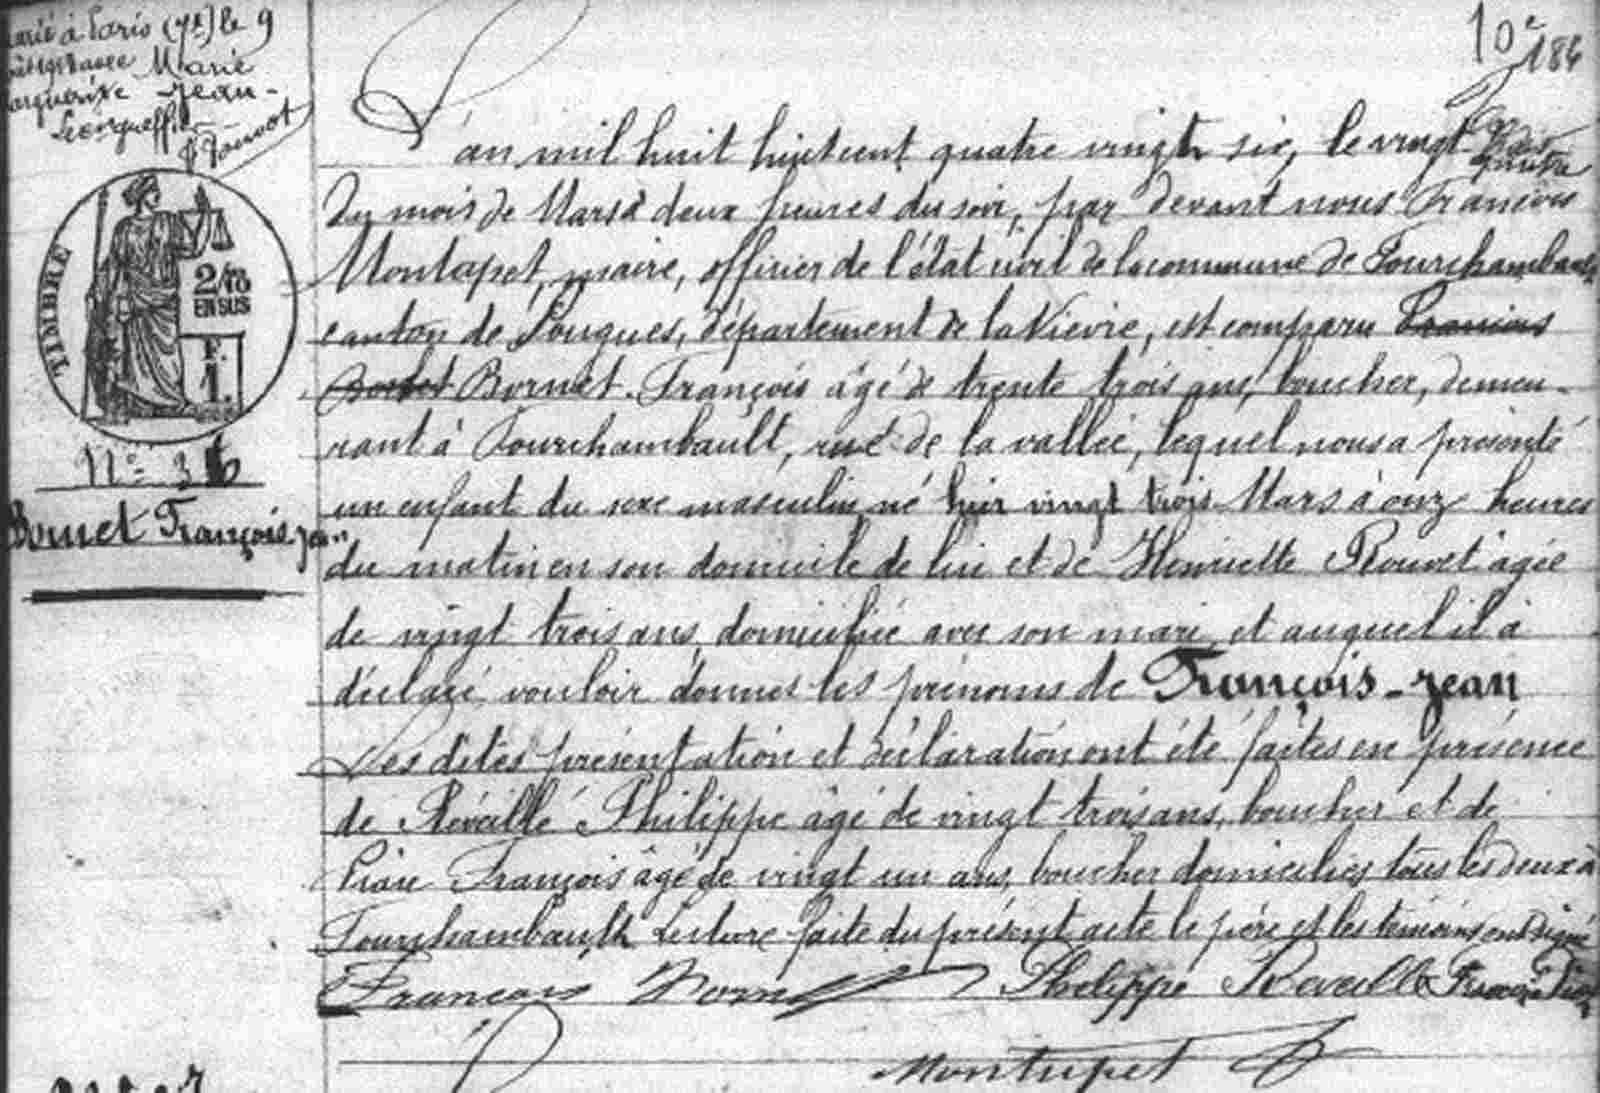 marié à Paris (7e) le 9
avec Marie
Marguerite Jean-
10e
186
L'an mil huit huit cent quatre vingt six, le vingt quatre
du mois de Mars à deux heures du soir, par devant nous François
Montupet, maire, officier de l'état civil de la commune de Fourchambault
canton de Pougues, département de la Nièvre, est comparu François
Bornet Bornet François âgé de trente trois ans, boucher, demeu-
rant à Fourchambault, rue de la vallée, lequel nous a présenté
TIMBRE
2/10
EN SUS
F.
1.
N° 36
Bornet François-Jean
un enfant du sexe masculin né hier vingt trois Mars à onze heures
du matin en son domicile de lui et de Henriette Rouvet âgée
de vingt trois ans, domiciliée avec son mari et auquel il a
déclaré vouloir donner les prénoms de François-Jean
Les dites présentation et déclaration ont été faites en présence
de Réveillé Philippe âgé de vingt trois ans, boucher et de
François âgé de vingt un ans, boucher domiciliés tous les deux à
Fourchambault Lecture faite du présent acte le père et les témoins ont signé
François Bornet Philippe Reveillé François
Montupet